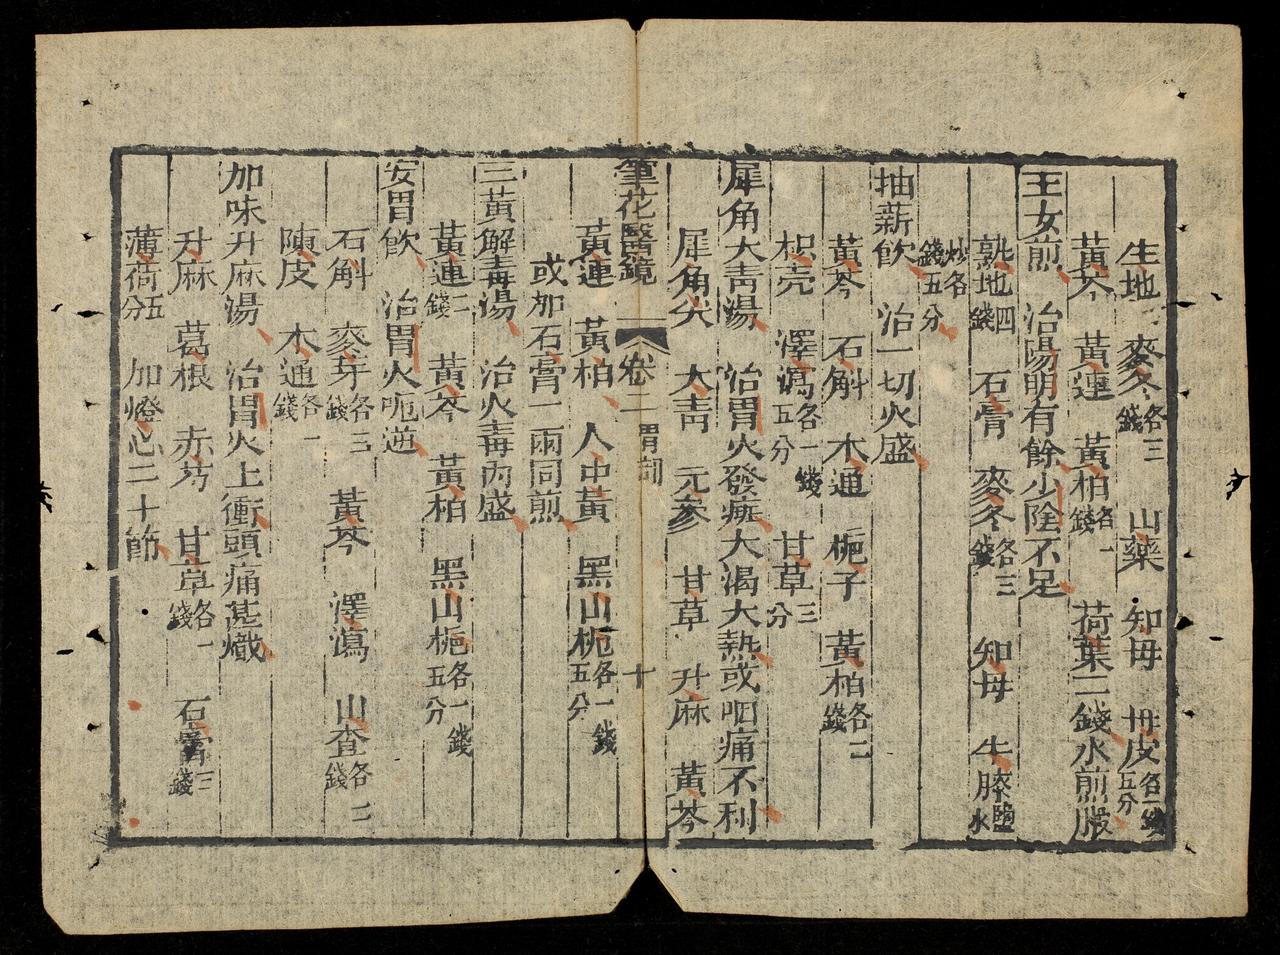 生地 麥冬各三錢 山藥 知母 丹皮各一錢五分
黃芩 黃連 黃柏各一錢 荷葉二錢水煎服
玉女煎 治陽明有餘少陰不足
熟地四錢 石膏 麥冬各三錢 知母 牛膝鹽水
炒各錢五分
抽薪飲 治一切火盛
黃芩 石斛 木通 梔子 黃柏各二錢
枳壳 澤瀉各一錢五分 甘草三分
犀角大青湯 治胃火發癍大渴大熱或咽痛不利
犀角尖 大青 元參 甘草 升麻 黃芩
筆花醫鏡 卷二 胃部 十
黃連 黃柏 人中黃 黑山梔各一錢五分
或加石膏一兩同煎
三黃解毒湯 治火毒內盛
黃連二錢 黃芩 黃柏 黑山梔各一錢五分
安胃飲 治胃火呃逆
石斛 麥芽各三錢 黃芩 澤瀉 山查各二錢
陳皮 木通各一錢
加味升麻湯 治胃火上衝頭痛甚熾
升麻 葛根 赤芍 甘草各一錢 石膏三錢
薄荷五分 加燈心二十節